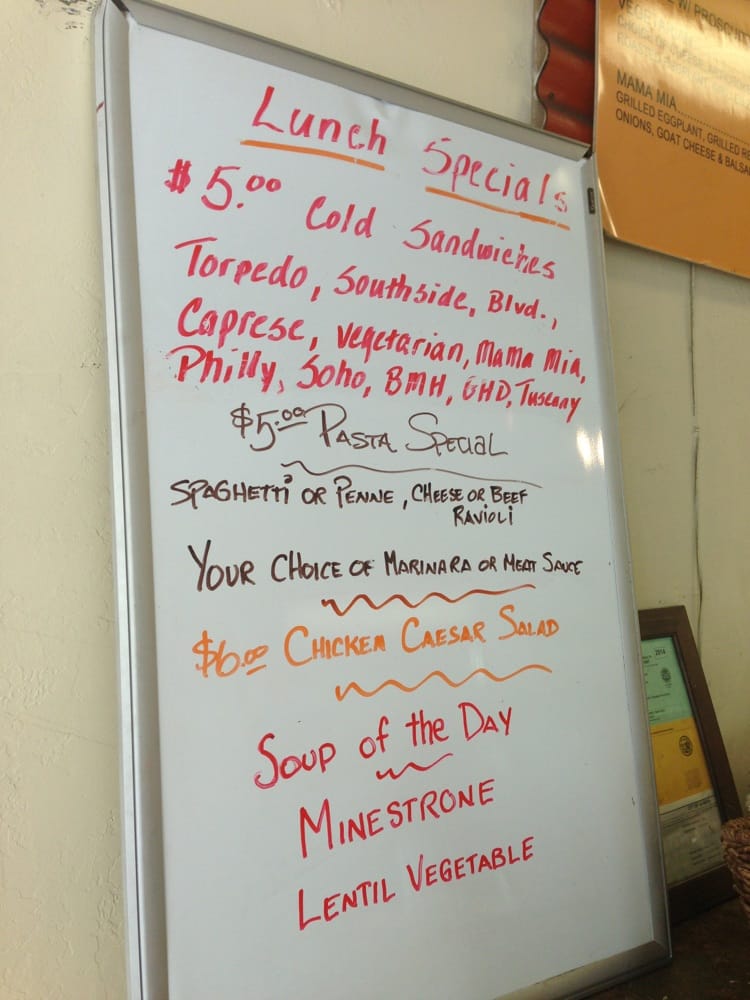 Lunch Specials
$5.00 Cold Sandwiches
Torpedo, Southside, Blvd.,
Caprese, Vegetarian, Mama Mia,
Philly, Soho, BMH, GHD, Tuscany
$5.00 Pasta Special
SPAGHETTI OR PENNE, CHEESE OR BEEF
RAVIOLI
YOUR CHOICE OF MARINARA OR MEAT SAUCE
$6.00 CHICKEN CAESAR SALAD
SOUP of the DAY
MINESTRONE
LENTIL VEGETABLE
W/ PROSCIUTT
MAMA MIA
GRILLED EGGPLANT, GRILLED RE
ONIONS, GOAT CHEESE & BALSA
2014